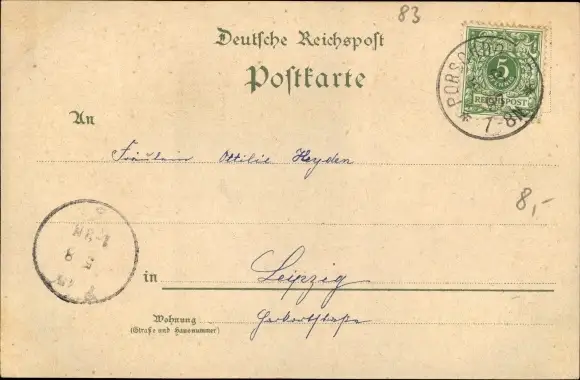 83
Deutsche Reichspost
Postkarte
5
REICHSPOST
7-8N
An
Fräulein Ottilie Heyden
8,-
in Leipzig
Wohnung
(Straße und Hausnummer)